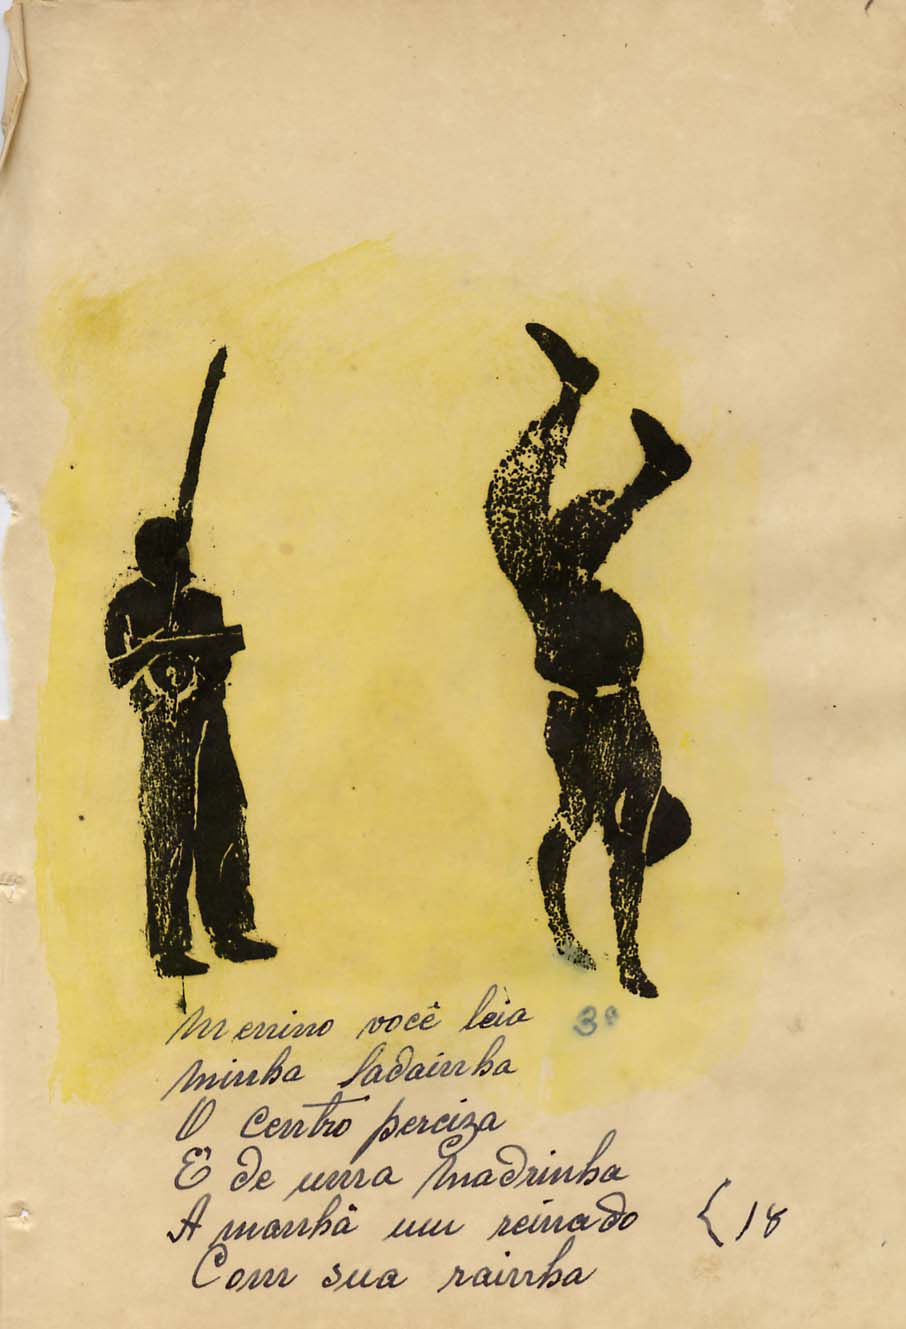 Menino você leia
3º
Minha ladainha
O centro perciza
É de uma Madrinha
A manhã um reinado
Com sua rainha
18